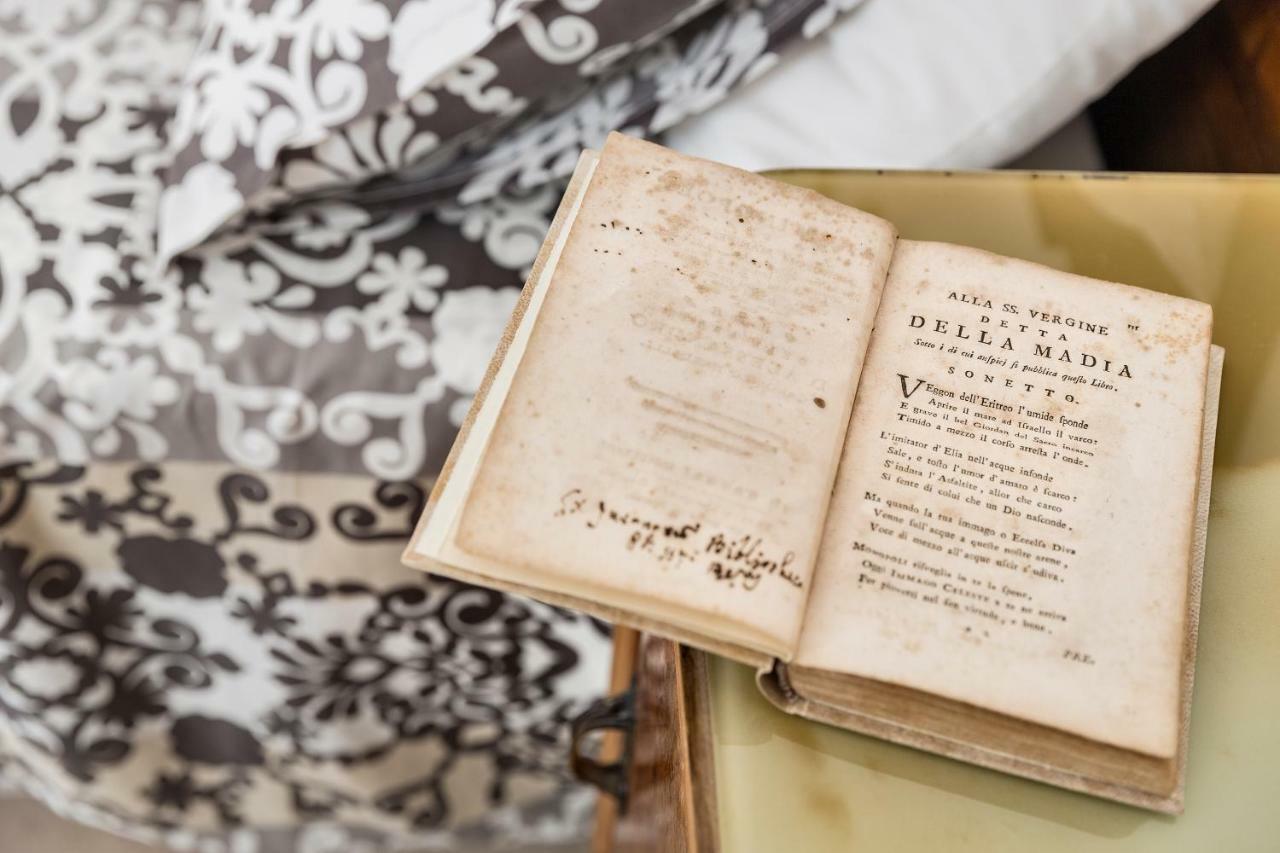 ALLA SS. VERGINE
DETTA
DELLA MADIA
Sotto i di cui auſpicj ſi pubblica queſto Libro.
SONETTO.
VEggon dell'Eritreo l'umide ſponde
Aprire il mare ad Iſraello il varco:
E grave il bel Giordan del Sacro incarco
Timido a mezzo il corſo arreſta l'onde.
L'imitator d'Elia nell'acque infonde
Sale, e toſto l'umor d'amaro è ſcarco:
S'indura l'Asfaltite, allor che carco
Si ſente di colui che un Dio naſconde.
Ma quando la tua immago o Eccelſa Diva
Venne full'acque a queſte noſtre arene,
Voce di mezzo all'acque uſcir s'udiva.
MONOPOLI riſveglia in te la ſpene,
Oggi IMMAGO CELESTE a te ne arriva
Per pioverti nel ſen virtude, e bene.
PRE.